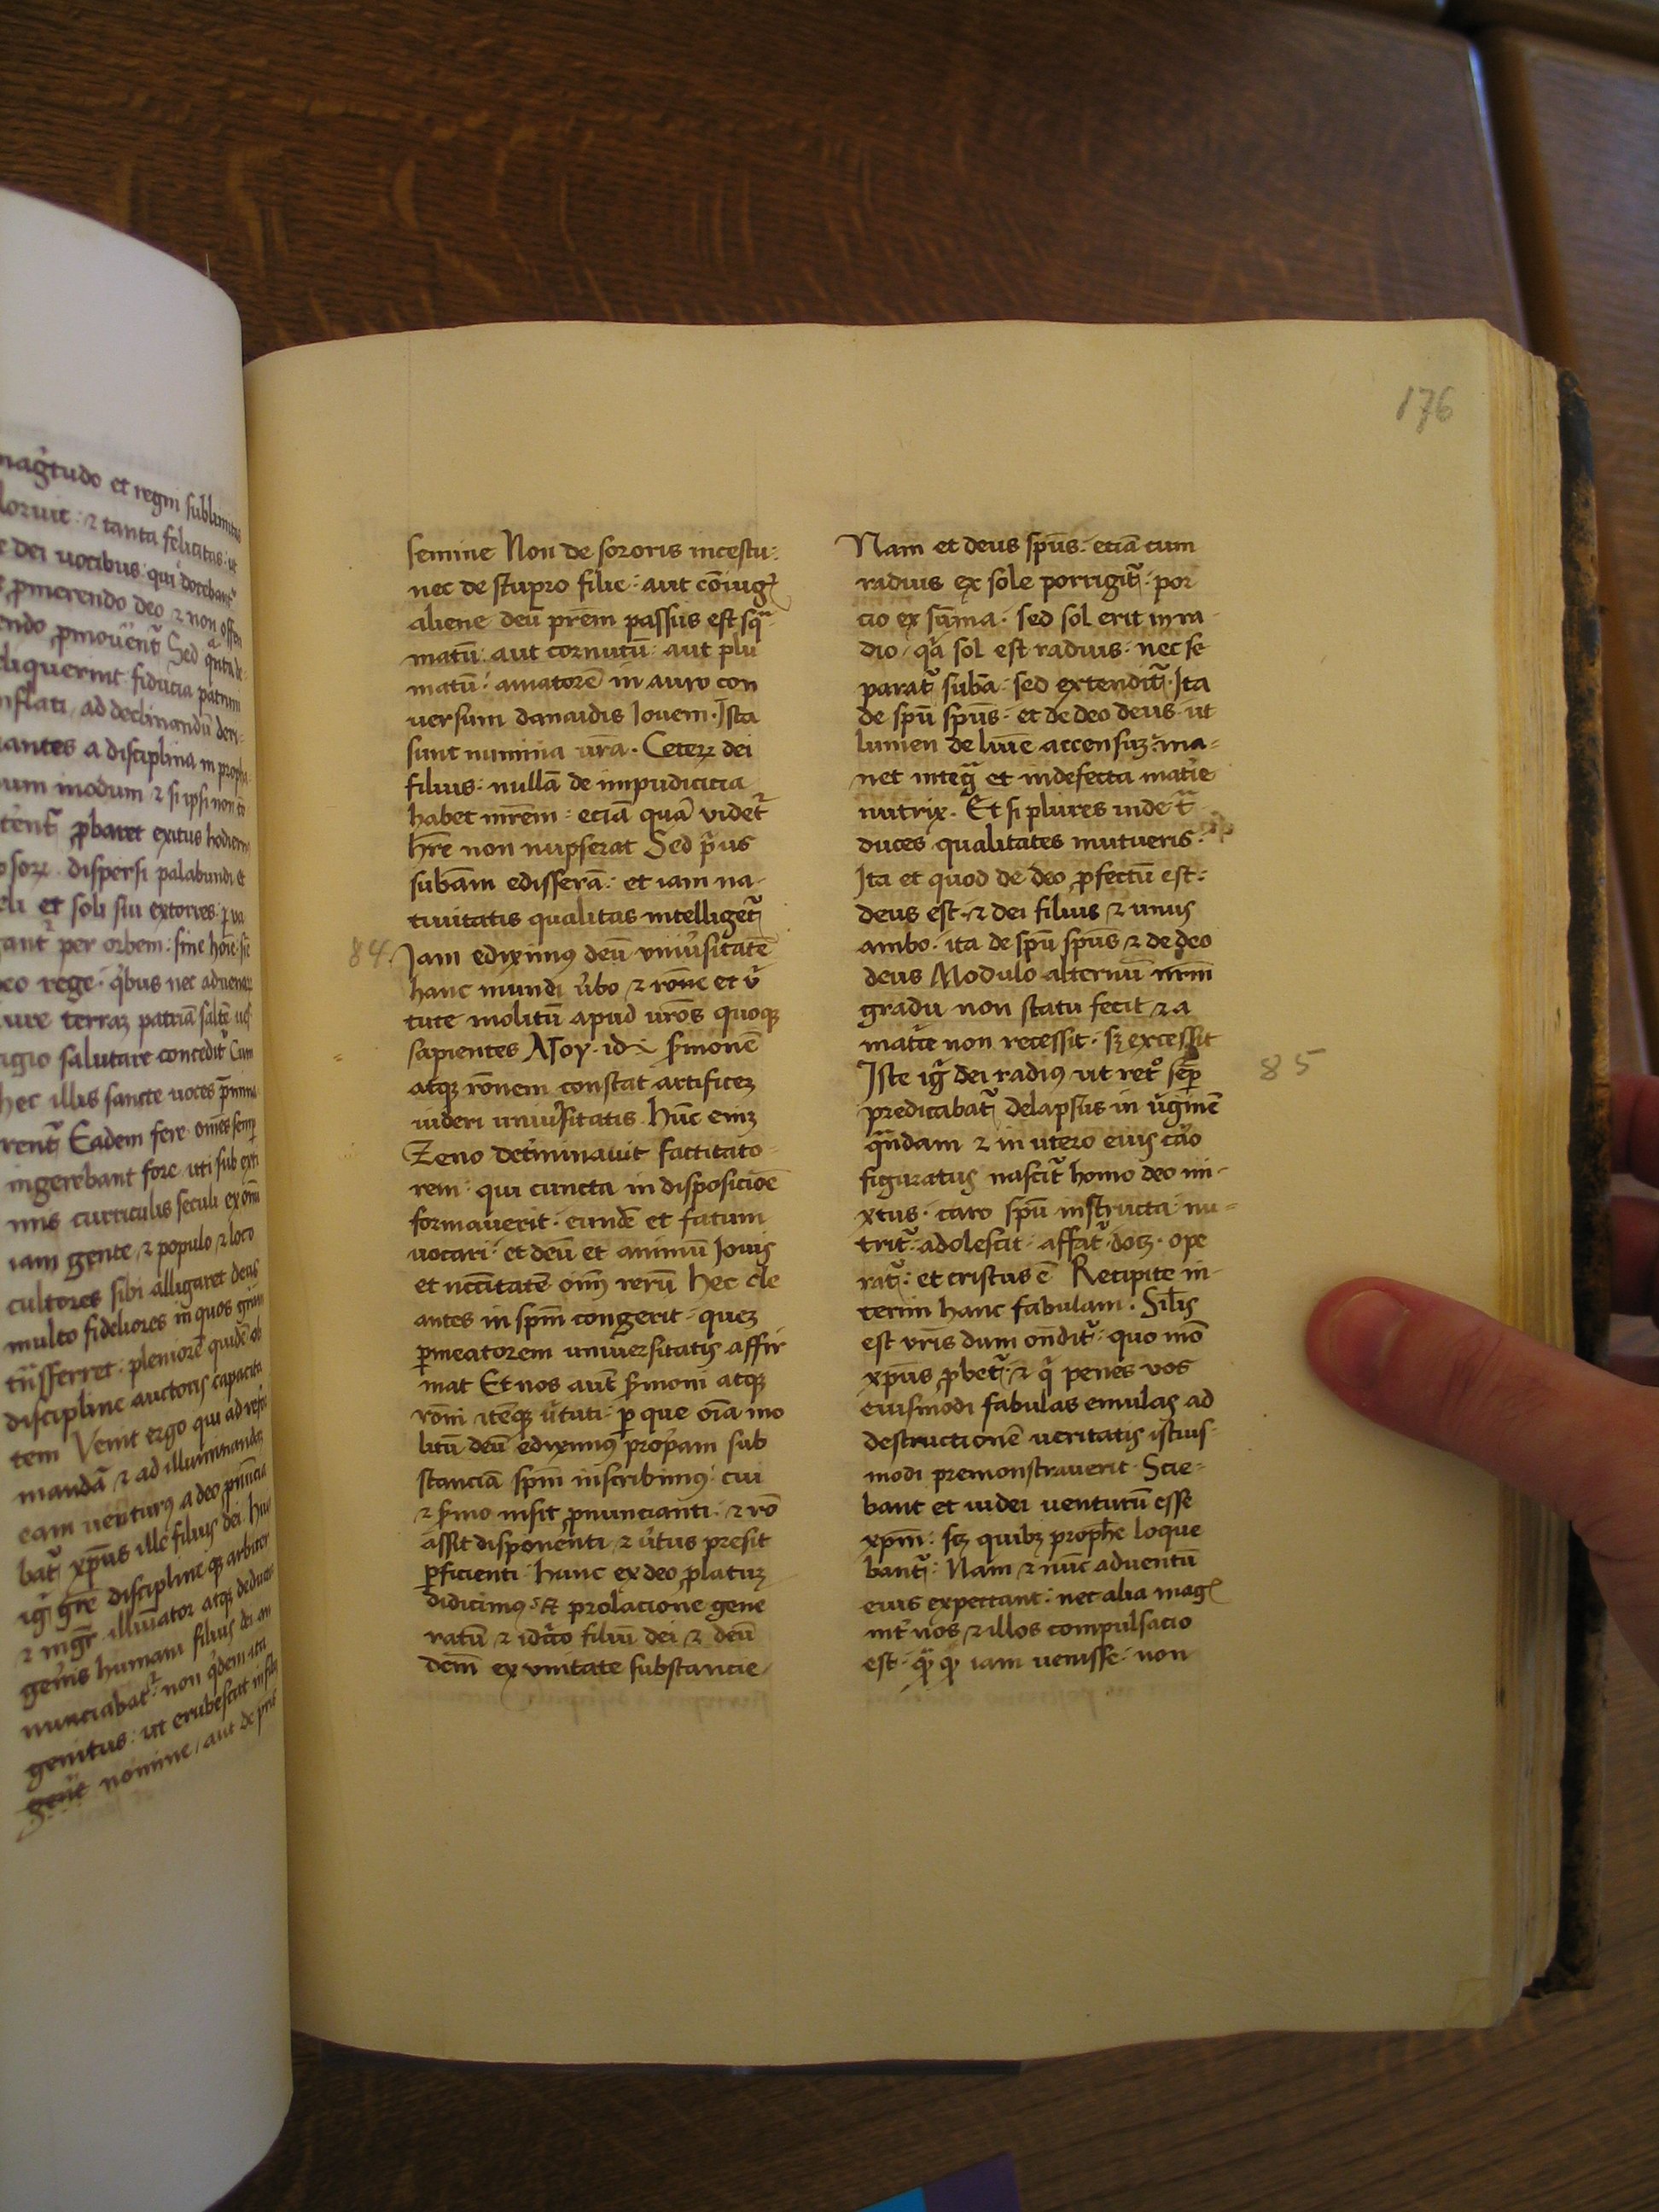 magr̃tudo et regni sublimitas
loruit : ⁊ tanta felicitas : ut
e dei uocibus qui docebant᷑
ꝓmerendo deo ⁊ non offen
endo ꝓmouent᷑ Sed q̃nta de
liquerint fiducia patrum
inflati / ad declinandũ deri-
antes a disciplina in propha
num modum ⁊ si ipsi non cõ
ꝓbaret exitus hodiern
dispersi palabundi et
eli et soli sui extorres
ant᷑ per orbem : sine hoĩe sĩe
deo rege · q̇bus nec aduenaꝝ
iure terraꝫ patriã saltẽ ues
igio salutare concedit᷑ Cum
hec illis sancte uoces p̃mina
rent᷑ Eadem fere om̃es semp̱
ingerebant fore uti sub extr
mis curriculis seculi ex om̃i
iam gente ⁊ populo ⁊ loco
cultores sibi alligaret deus
multo fideliores in quos grãm
tñsferret · pleniorẽ quidẽ ob
discipline auctoris capacita
tem Venit ergo qui ad refor
mandã ⁊ ad illuminandã
eam uenturꝰ a deo p̃nũcia
bat᷑ xp̃us ille filius dei Huiꝰ
ig̃r gr̃e discipline qꝫ arbiter
⁊ mgr̃ illũiator atqꝫ deductor
gen̾is humani filius dei an
nunciabat᷑ non q̇dem ita
genitus : ut erubescat in filij
nomine / aut de pr̃is
176
semine Non de sororis incestu :
nec de stupro filie : aut cõiugꝭ
aliene deũ pr̃em passus est squa
matũ : aut cornutũ : aut plu
matũ : amatorẽ in auro con
uersum danaidis Iouem · Ista
sunt numina ur̃a · Ceterꝝ dei
filius : nullã de impudicicia
habet mr̃em : eciã quã videt᷑
hr̃e non nupserat Sed pͥus
subãm edisserã : et iam na-
tiuitatis qualitas intelliget᷑
84. Iam ediximꝰ deũ vniu̾sitatẽ
hanc mundi u̾bo ⁊ rõne et v̾
tute molitũ apud ur̃os quoqꝫ
sapientes λογ · id ẽ s̾monẽ
atqꝫ rõnem constat artificeꝫ
uideri uniu̾sitatis Hũc enĩ
Zeno det̾minauit factitato-
rem : qui cuncta in disposiciõe
formauerit · eundẽ et fatum
uocari : et deũ et animũ Iouis
et nccĩtatẽ oĩm rerũ Hec cle
antes in spm̃ congerit · quẽ
ꝑmeatorem uniuersitatis affir
mat Et nos aut̃ s̾moni atqꝫ
rõni itẽqꝫ u̾tuti : ꝑ que oĩa mo
litũ deũ ediximꝰ prop̾am sub
stanciã spm̃ inscribimꝰ : cui
⁊ s̾mo insit ꝓnuncianti : ⁊ rõ
assit disponenti ⁊ u̾tus presit
ꝑficienti · Hunc ex deo ꝓlatuꝫ
didicimꝰ : ⁊ prolacione gene
ratũ ⁊ idc̾co filiũ dei ⁊ deũ
dcm̃ ex vnitate substancie /
Nam et deus spũs · eciã cum
radius ex sole porrigit᷑ · por
cio ex sũma · sed sol erit in ra
dio · qͥa sol est radius : nec se
parat᷑ subã : sed extendit᷑ · Ita
de spũ spũs · et de deo deus · ut
lumen de lũie accensuꝫ · ma-
net integͣ et indefecta mat̾ie
nutrix · Et si plures inde t̾
duces qualitates mutueris :
Ita et quod de deo ꝓfectũ est :
deus est · ⁊ dei filius ⁊ unus
ambo · ita de spũ spũs ⁊ de deo
deus Modulo alternũ
gradu non statu fecit ⁊ a
mat̾ce non recessit · sꝫ excessit
85 Iste ig̃r dei radiꝰ ut ret᷑o semꝑ
predicabat᷑ delapsus in u̾ginẽ
qͣndam ⁊ in utero eius caro
figuratus nascit᷑ homo deo mi-
xtus · caro spũ instructa · nu-
trit᷑ · adolescit · affat᷑ · docꝫ · ope
rat᷑ : et cristus ẽ Recipite in-
terim hanc fabulam · Sil̃is
est vr̃is dum oñdit᷑ · quo mõ
xp̃us ꝓbet᷑ : ⁊ qͥ penes vos
eiusmodi fabulas emulas ad
destructionẽ ueritatis istius-
modi premonstrauerit Scie-
bant et iudei uenturũ esse
xpm̃ : sꝫ quibꝫ prophe loque
bant᷑ : Nam ⁊ nũc aduentũ
eius expectant : nec alia magꝭ
int̾ nos ⁊ illos compulsacio
est · qͣ̾ qͣ̾ iam uenisse · non